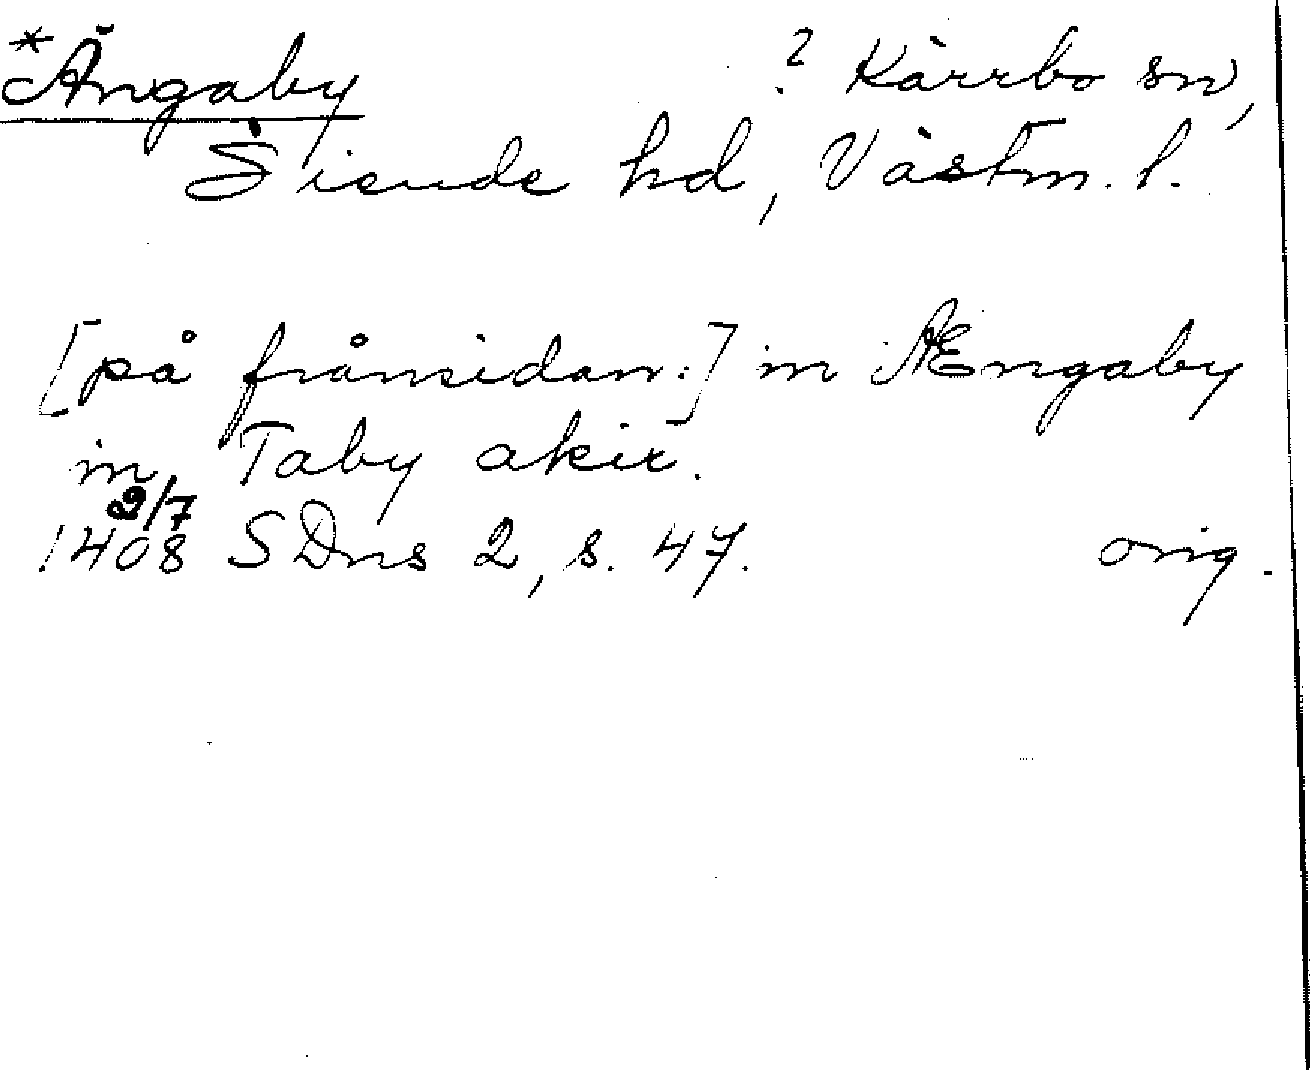 *Ängaby ? Kärrbo sn,
Siende hd, Västm. l.
[på frånsidan:] in Ængaby
in Taby akir.
2/7
1408 SDns 2, s. 47. orig.